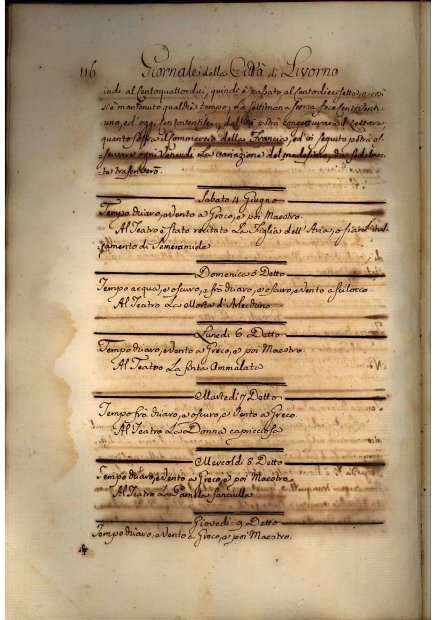 116 Giornale della Città di Livorno
indi al sento quattordici, quindi è passato al sento diecisette, e così
si è mantenuto qualche tempo, La settimana scorsa fece sento vent-
uno, ed oggi sento ventisei, dal che potrà congetturare il Lettore
quanto soffra il commercio della Francia, ed in seguito potrà os-
servare ogni Venerdì La variazione del medesimo,
Sabato 4 Giugno
Tempo chiaro, e vento a Greco, e poi Maestro.
Al Teatro è stato recitato La Figlia dell'Aria, o sia l'Inal-
zamento di Semiramide
Domenica 5 Detto
Tempo acqua, e oscuro, e frà chiaro, e oscuro, e vento a scilocco
Al Teatro La Morte d'
Lunedì 6 Detto
Tempo chiaro, e vento a Greco, e poi Maestro
Al Teatro La finta Ammalata
Martedì 7 Detto
Tempo frà chiaro, e oscuro, e vento a Greco.
Al Teatro La Donna capricciosa
Mercoldì 8 Detto
Tempo chiaro, e vento a Greco, e poi Maestro
Al Teatro La Pamella fanciulla
Giovedì 9 Detto
Tempo chiaro, e vento a Greco, e poi Maestro.